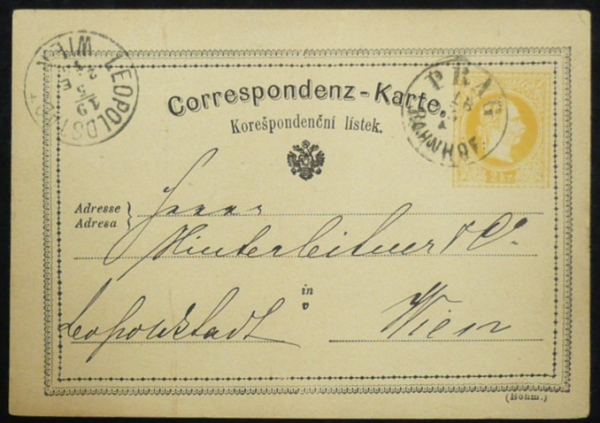 WIEN LEOPOLDSTADT
19
5
PRAG
18
5
BAHNHOF
Correspondenz-Karte.
Korešpondenční lístek.
2 KR
Adresse
Adresa
Herrn
Hinterleitner & Co
in
v
Leopoldstadt Wien
(Böhm.)